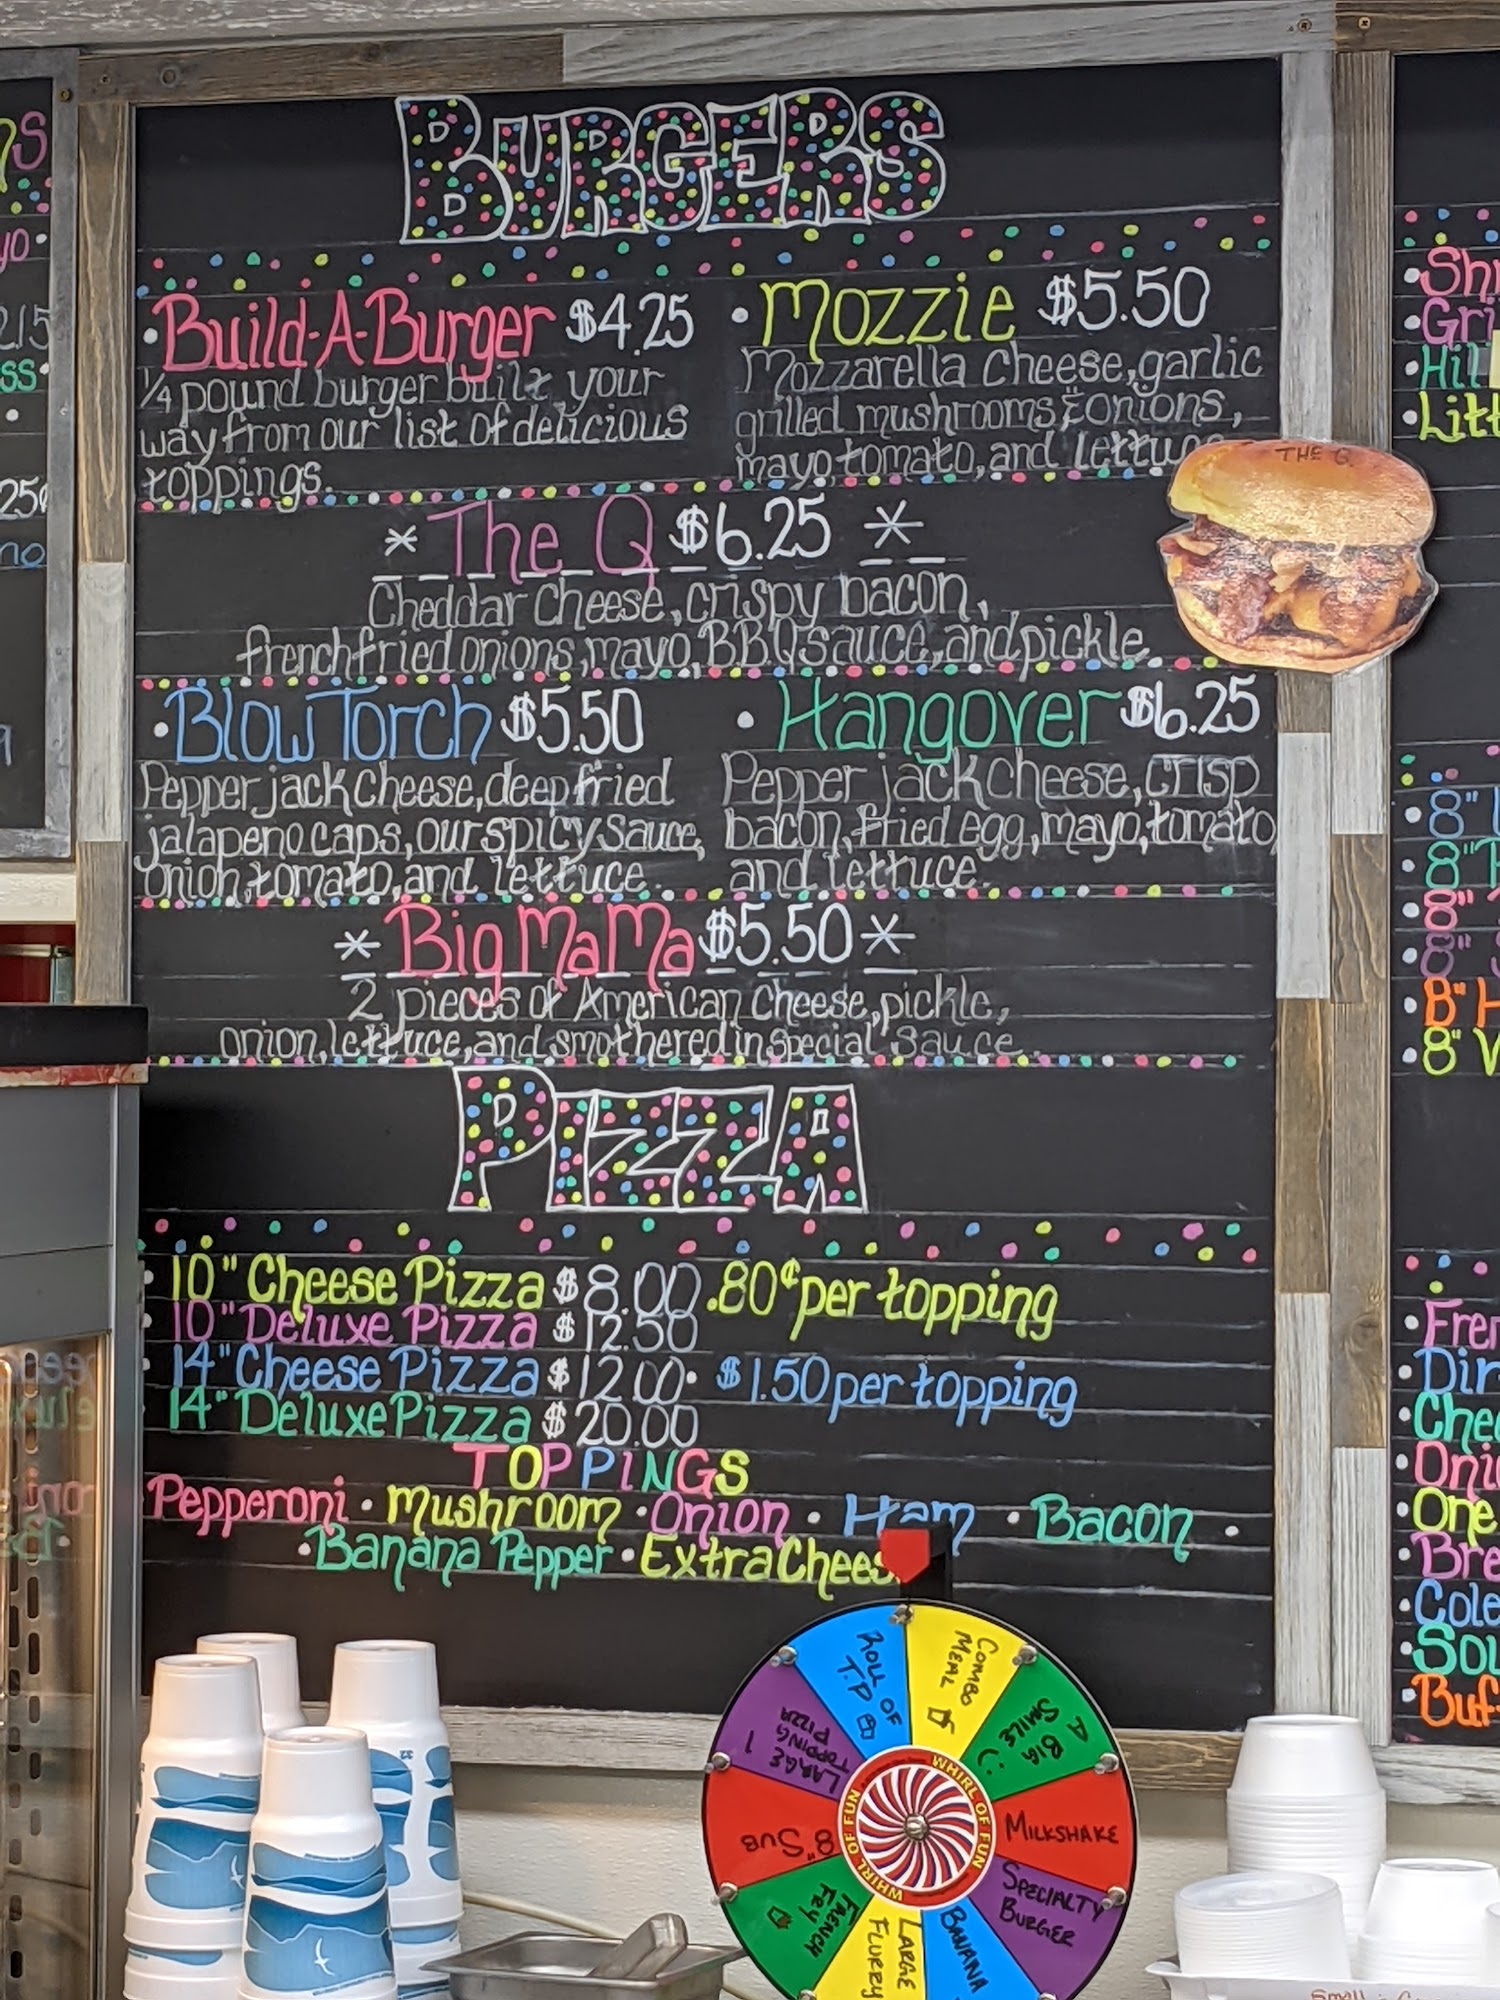 BURGERS
• Build-A-Burger $4.25
1/4 pound burger built your
way from our list of delicious
toppings.
• Mozzie $5.50
Mozzarella Cheese, garlic
grilled mushrooms & onions,
mayo, tomato, and
THE Q
* The Q $6.25 *
Cheddar Cheese, crispy bacon,
french fried onions, mayo, BBQ sauce, and pickle.
• Blow Torch $5.50
Pepper jack Cheese, deep fried
jalapeno caps, our spicy sauce,
onion, tomato, and lettuce.
• Hangover $6.25
Pepper jack Cheese, crisp
bacon, fried egg, mayo, tomato,
and lettuce.
* Big MaMa $5.50 *
2 pieces of American Cheese, pickle,
onion, lettuce, and smothered in special sauce.
PIZZA
• 10" Cheese Pizza $8.00 • .80¢ per topping
• 10" Deluxe Pizza $12.50
• 14" Cheese Pizza $12.00 • $1.50 per topping
• 14" Deluxe Pizza $20.00
TOPPINGS
Pepperoni • Mushroom • Onion • Ham • Bacon •
• Banana Pepper • Extra
ROLL OF
T.P
COMBO
MEAL
A BIG
SMILE
MILKSHAKE
SPECIALTY
BURGER
BANANA
LARGE
FLURRY
FRENCH
FRY
8" SUB
LARGE 1
TOPPING
PIZZA
WHIRL OF FUN
WHIRL OF FUN
WHIRL OF FUN
8"
8"
8"
8"
8"
8"
One
32
Small